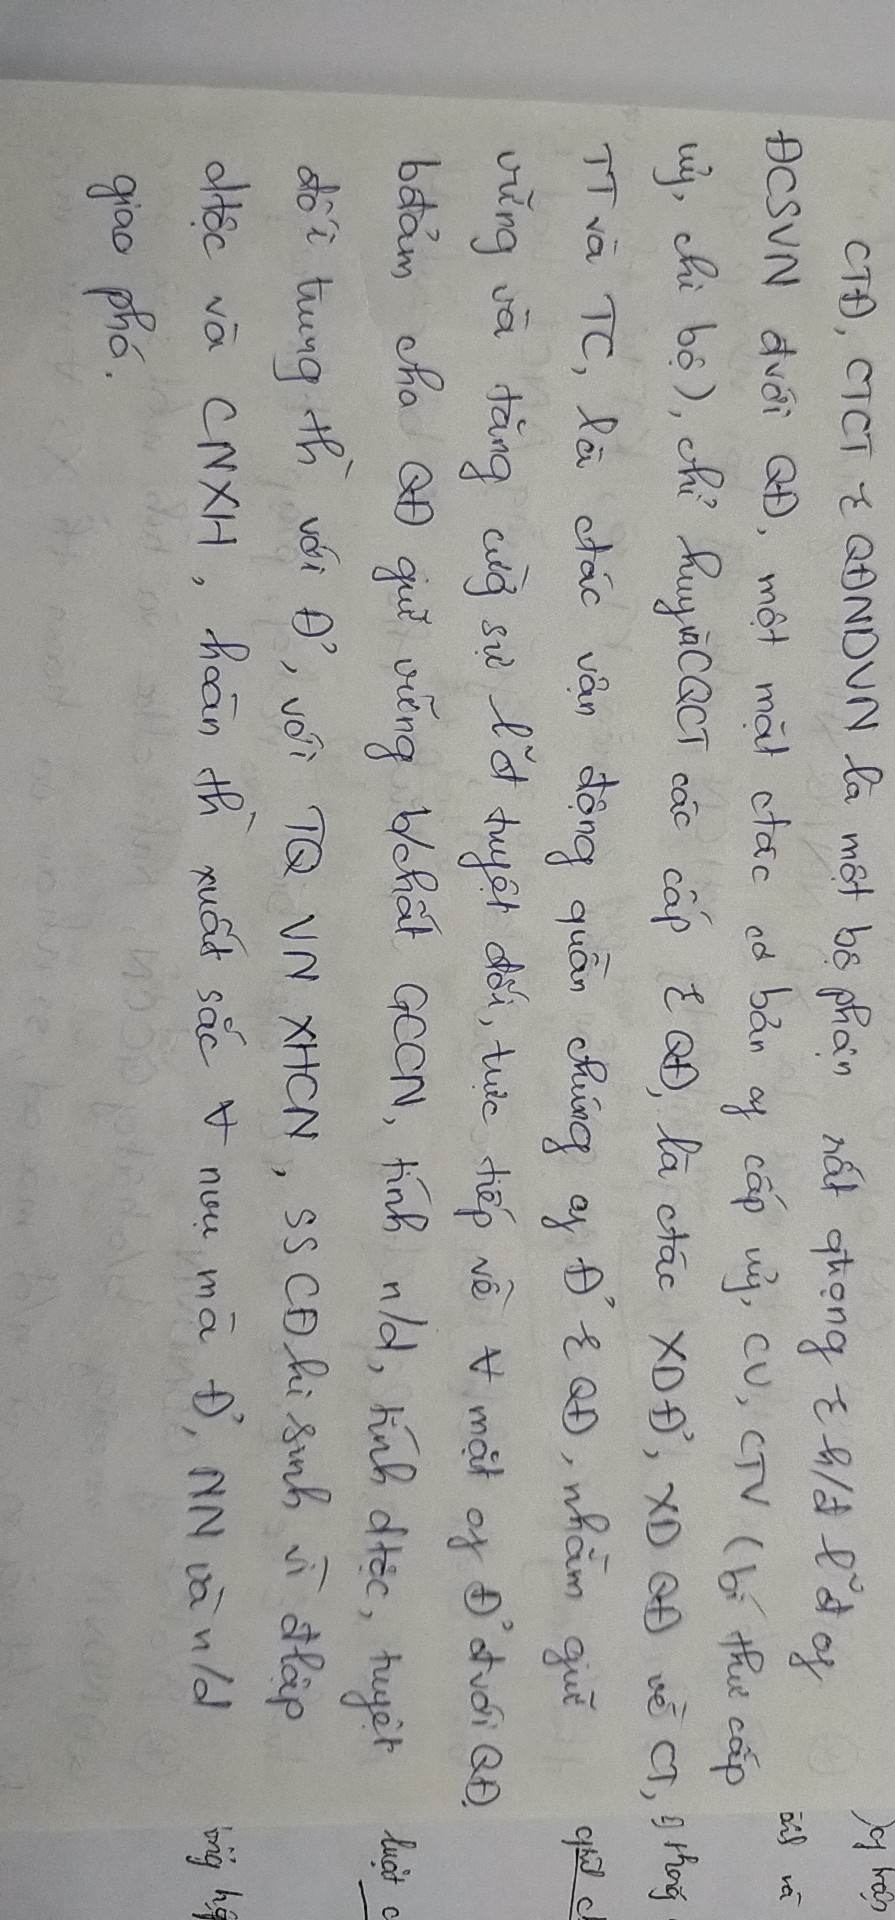 CTĐ, CTCT ξ QĐNDVN là một bộ phận rất qtrọng ξ h/đ l˜đ of
ĐCSVN đvới QĐ, một mặt ctác cơ bản of cấp uỷ, CU, CTV (bí thư cấp
uỷ, chi bộ), chỉ huy và CQCT các cấp ξ QĐ, là ctác XDĐ', XD QĐ về CT,
TT và TC, là ctác vận động quần chúng of Đ' ξ QĐ, nhằm giữ
vững và tăng cg̀ sự l˜đ tuyệt đối, trực tiếp về ∀ mặt of Đ' đvới QĐ,
bđảm cho QĐ giữ vững b/chất GCCN, tính n/d, tính dtộc, tuyệt
đối trung th̀ với Đ', với TQ VN XHCN, SSCĐ hi sinh vì đlập
dtộc và CNXH, hoàn th̀ xuất sắc ∀ nvụ mà Đ', NN và n/d
giao phó.
luật c